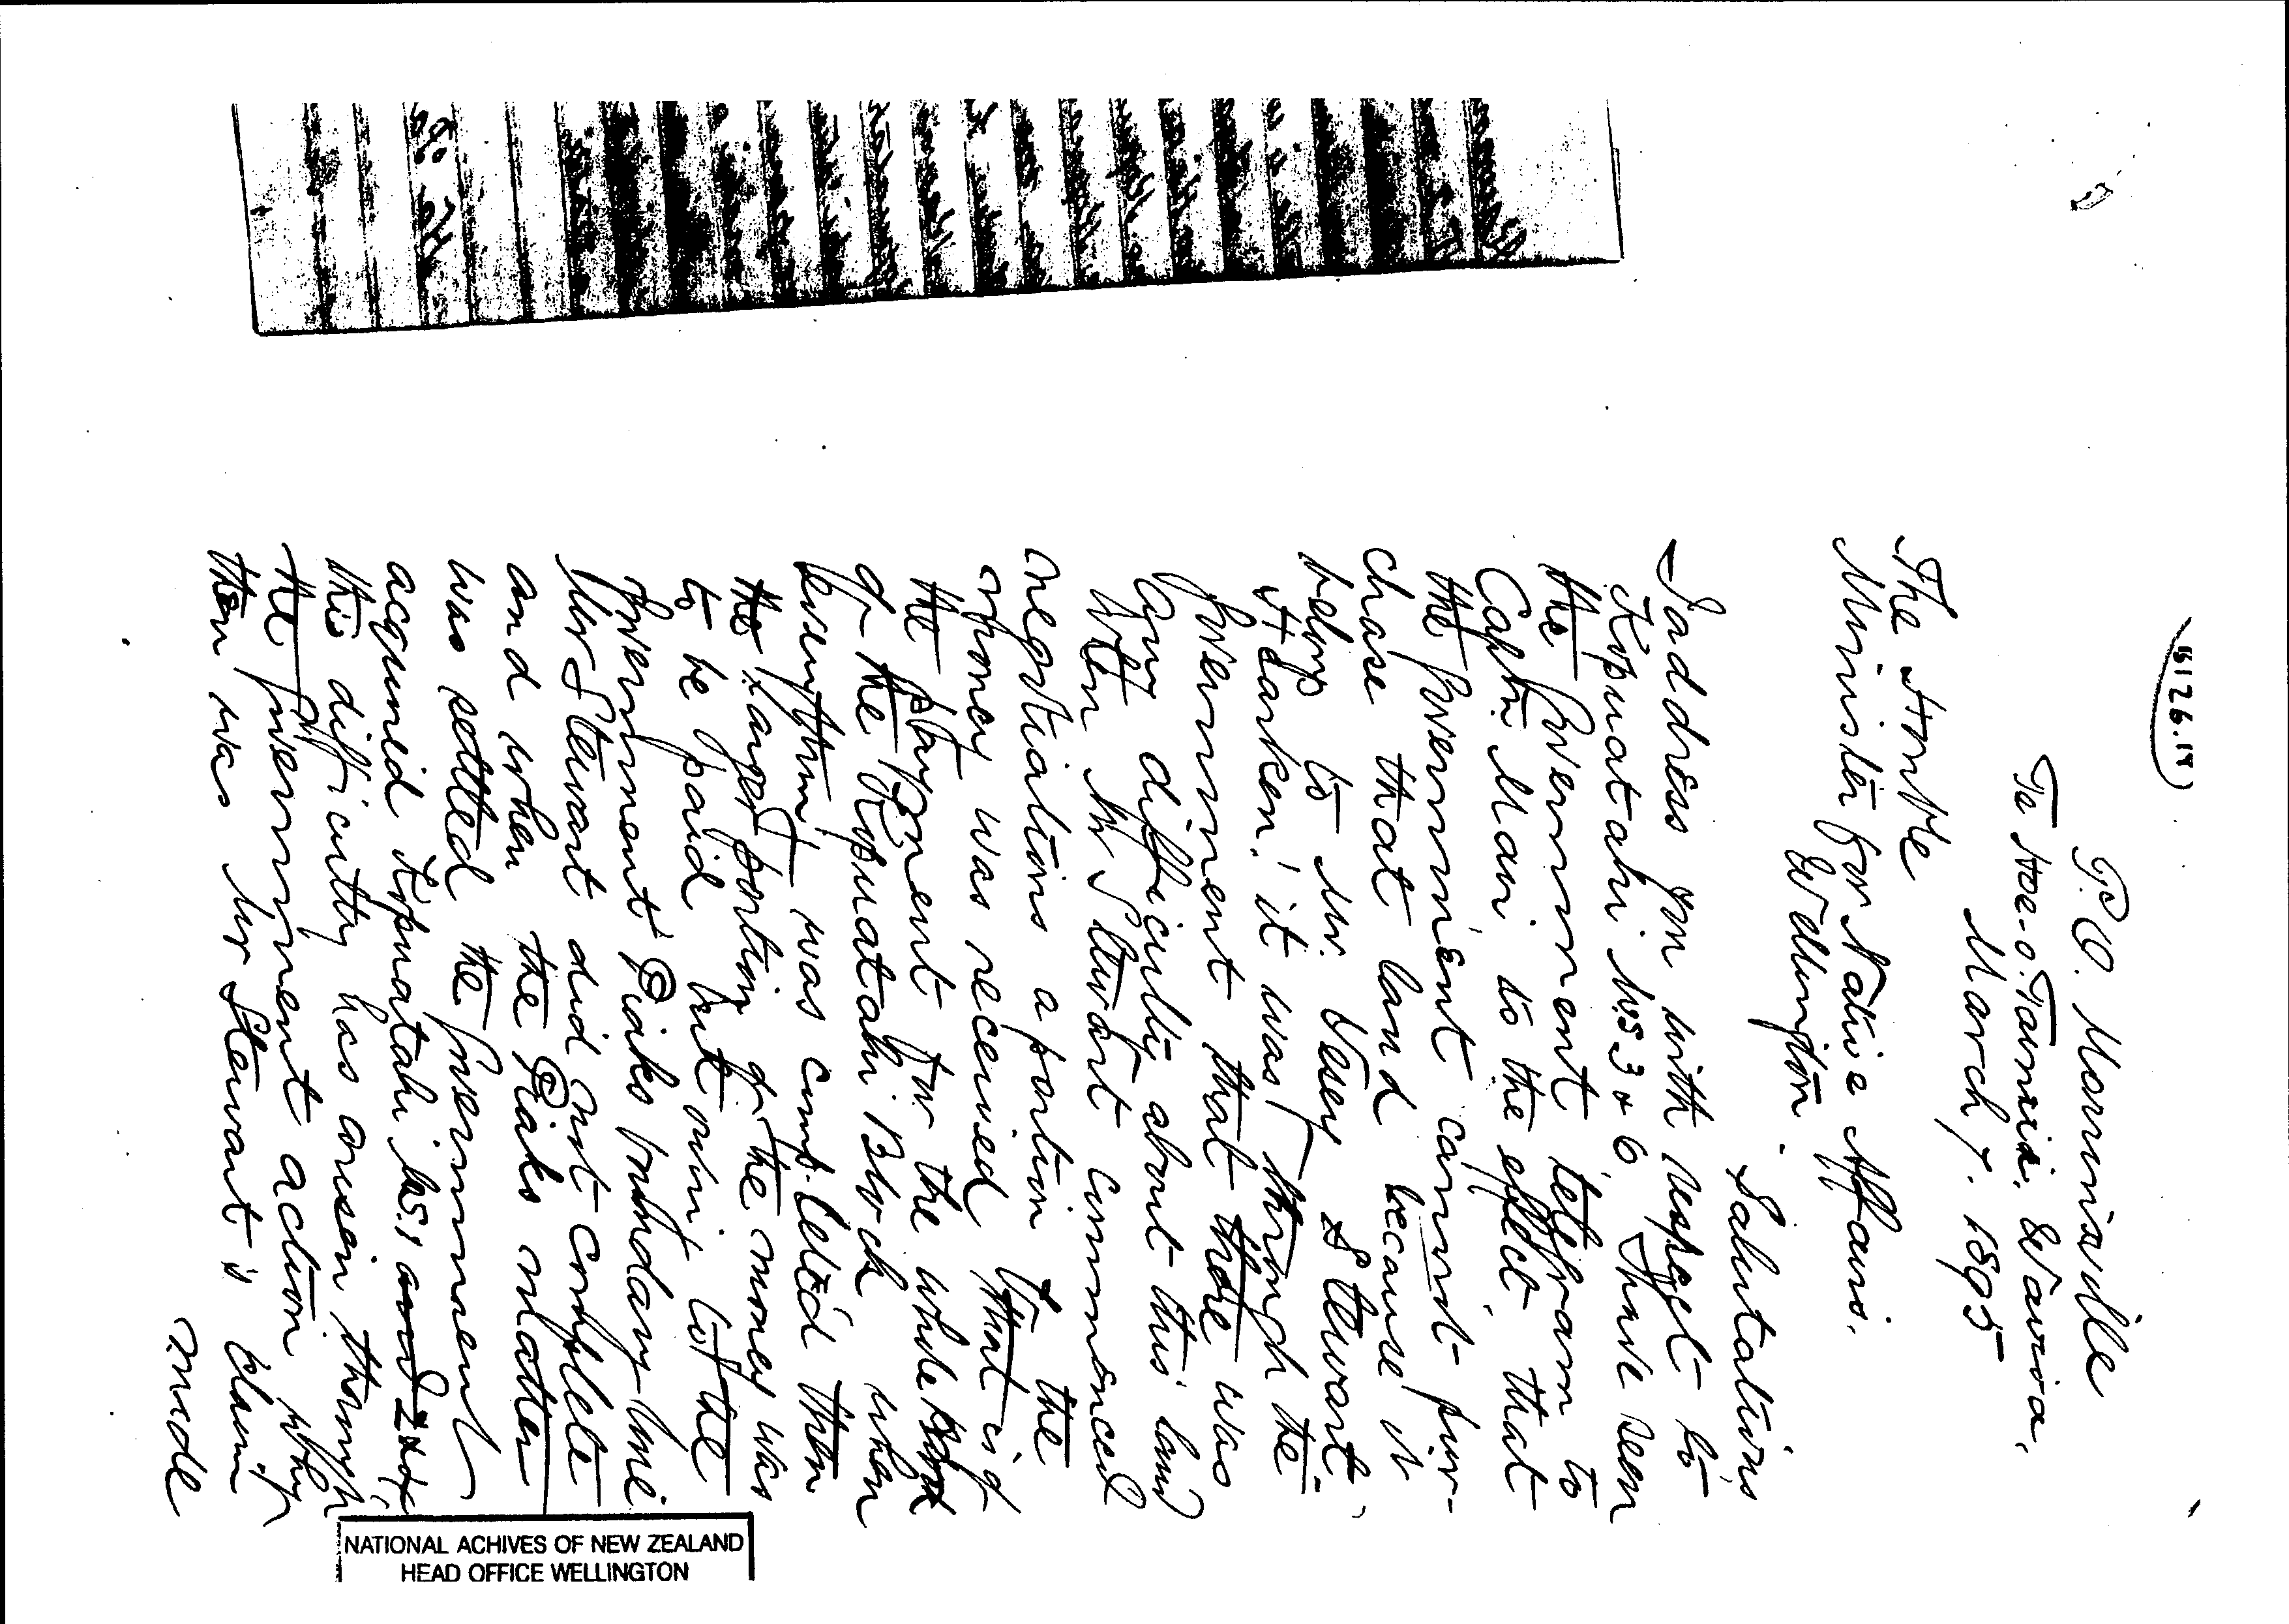 P.O. Morrinsville
Te Hoe-o-Tainui. Wairoa.
March 7. 1895
The Honble
Minister for Native Affairs.
Wellington.
Salutations
I address you with respect to
Kopuatahi Nos 3 & 6. I have seen
the Government telegram to
Captn Mair to the effect that
the Government cannot pur-
chase that land because it
belongs to Mr. Vesey Stewart.
Hearken! it was through the
Government that there was
any difficulty about this land
When Mr Stewart commenced
negotiations a portion of the
money was received that is
the payment for the whole
of the Kopuatahi Block when
everything was completed then
the larger portion of the money was
to be paid but owing to the
Government Piako boundary line
Mr Stewart did not complete
and when the Piako matter
was settled the Government
acquired Kopuatahi Nos 1 and 2
this difficulty has arisen through
the Government action why
then was Mr Stewart's claim
made
NATIONAL ACHIVES OF NEW ZEALAND
HEAD OFFICE WELLINGTON